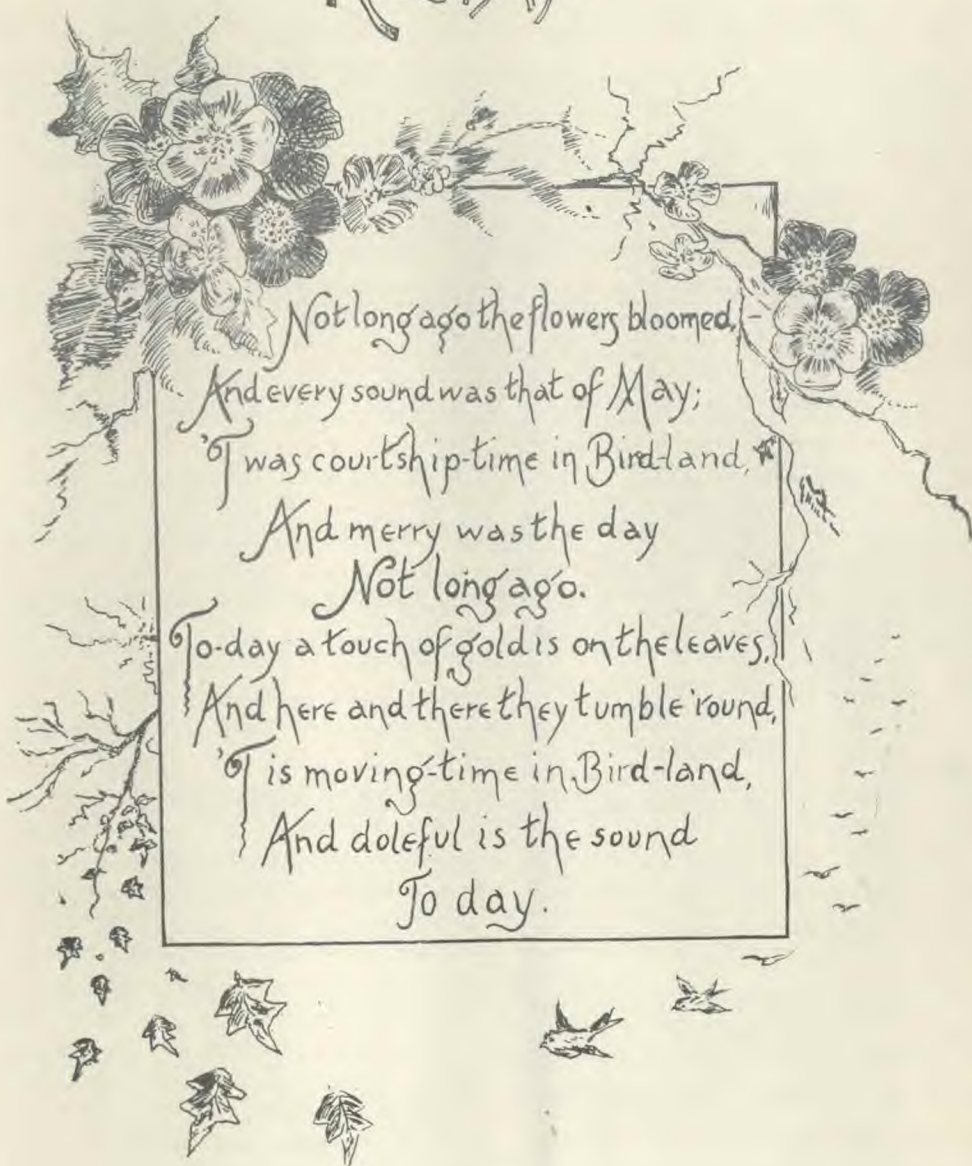 Not long ago the flowers bloomed,
And every sound was that of May;
'Twas courtship-time in Bird-land,
And merry was the day
Not long ago.
To-day a touch of gold is on the leaves,
And here and there they tumble 'round,
'Tis moving-time in Bird-land,
And doleful is the sound
To day.